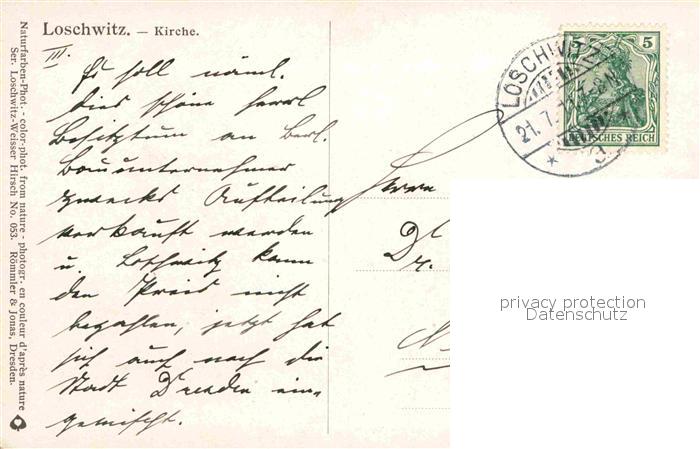 Loschwitz. — Kirche.
III.
Es soll näml.
dies schöne herrl.
Besitztum an Berl.
Bauunternehmer
zwecks Aufteilung
verkauft werden
u. Loschwitz kann
den Preis nicht
bezahlen; jetzt hat
sich auch noch die
Stadt Dresden ein-
gemischt.
Herrn
Dr.
LOSCHWITZ
21.7.
5
DEUTSCHES REICH
privacy protection
Datenschutz
Naturfarben-Phot. - color-phot. from nature - photogr. en couleur d'après nature
Ser. Loschwitz-Weisser Hirsch No. 053. Römmler & Jonas, Dresden.